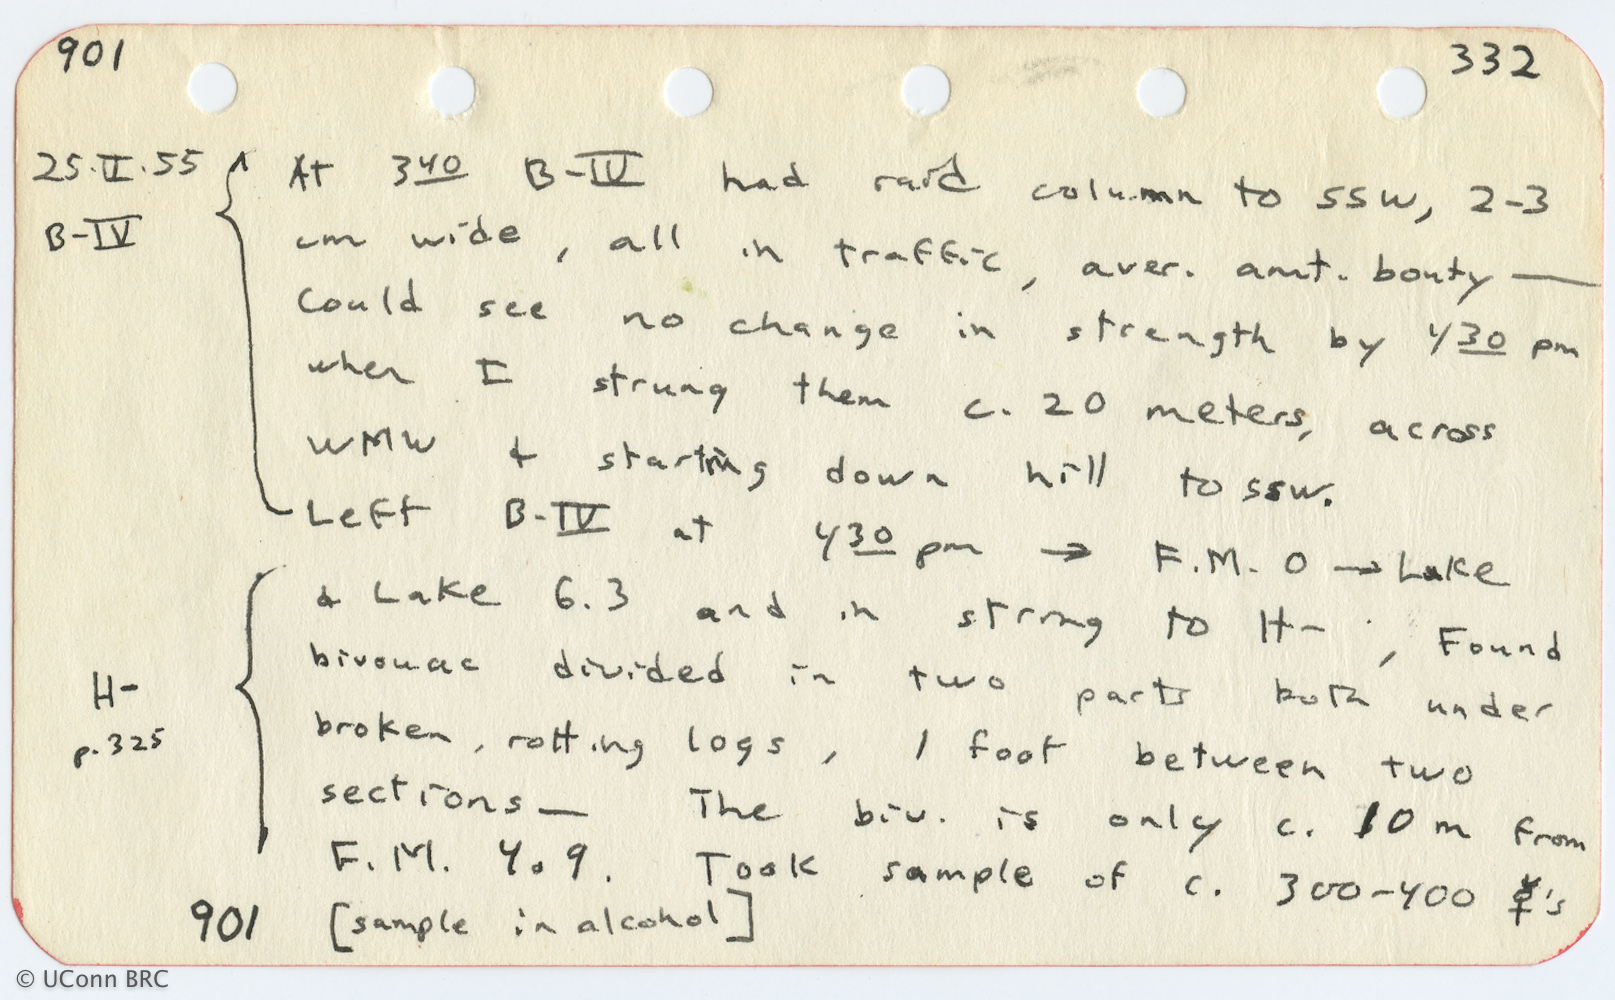 901
332
25.II.55
B-IV
At 3 40 B-IV had raid column to SSW, 2-3
cm wide, all in traffic, aver. amt. booty —
Could see no change in strength by 4 30 pm
when I strung them c. 20 meters, across
WMW & starting down hill to SSW.
Left B-IV at 4 30 pm → F.M. 0 → Lake
& Lake 6.3 and in string to H- , Found
bivouac divided in two parts both under
H-
p. 325
broken, rotting logs, 1 foot between two
sections — The biv. is only c. 10 m from
F.M. 4.9. Took sample of c. 300-400 ☿'s
901 [sample in alcohol]
© UConn BRC